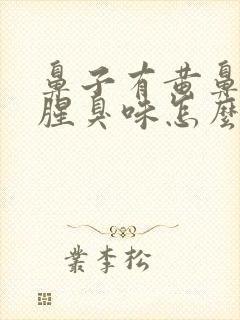 鼻子有黄鼻
腥臭味怎麼
業李松